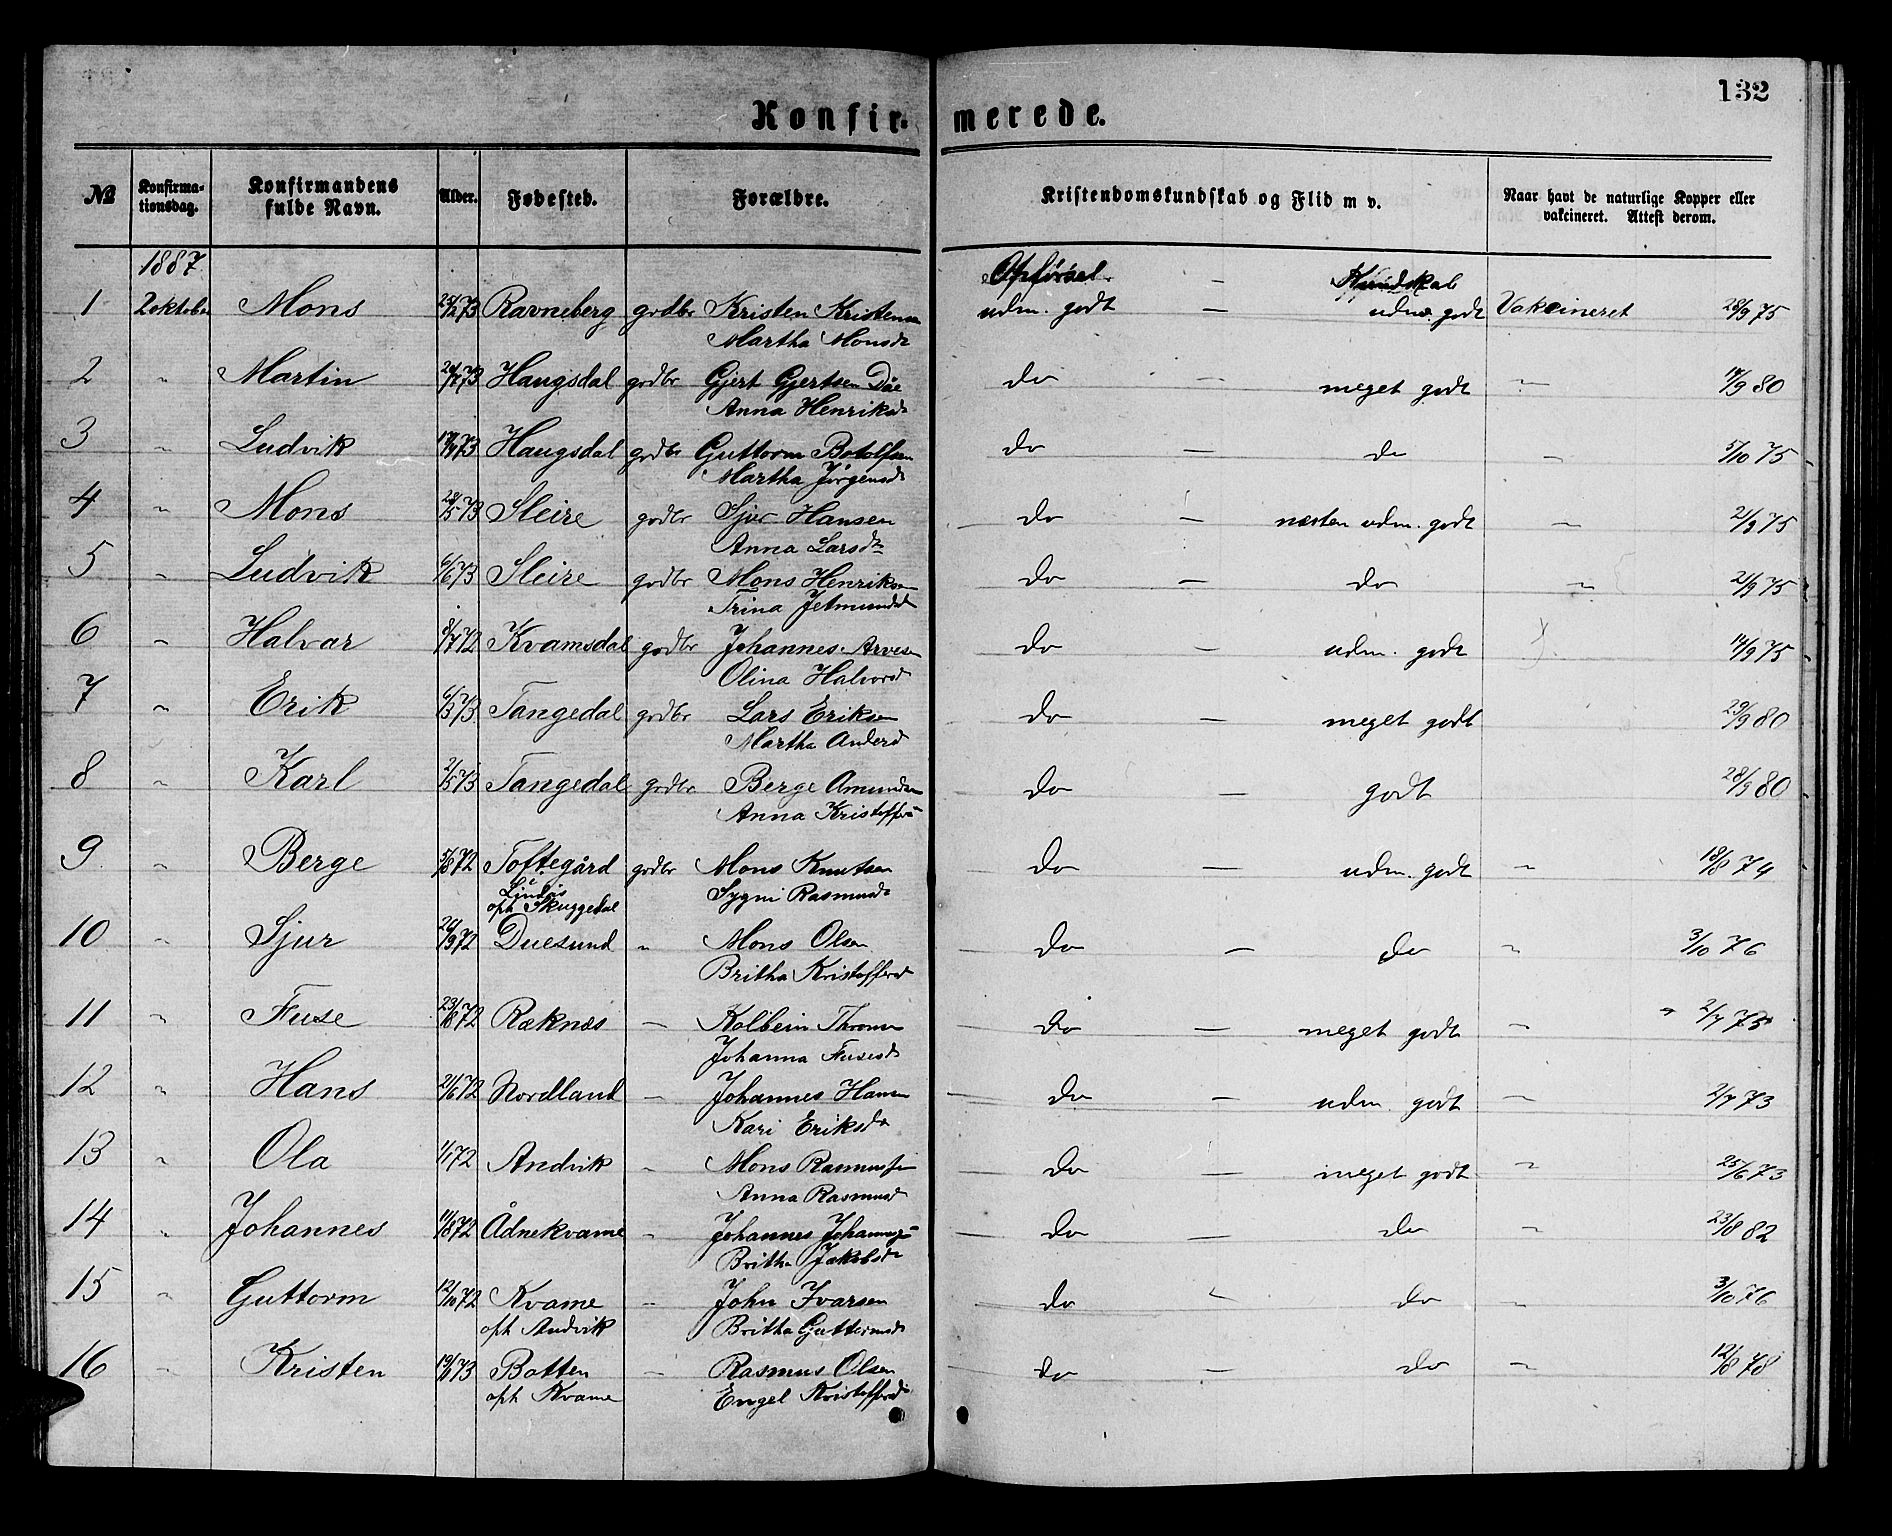 132
Konfir- merede.
№ Konfirma-tionsdag. Konfirmandens fulde Navn. Alder. Fødested. Forældre. Kristendomskundskab og Flid m v. Naar havt de naturlige Kopper eller vakcineret. Attest derom.
1887 Opførsel - Kundskab
1 2 oktober Mons Ravneberg grdbr Kristen Kristensen udm. godt - udm. godt Vakcineret 28/9 75
Martha Monsdr
2 " Martin Haugsdal grdbr Gjert Gjertsen Due do - meget godt " 17/9 80
Anna Henriksdr
3 " Ludvik Haugsdal grdbr Guttorm Botolfsen do - do " 5/10 75
Martha Jørgensdr
4 " Mons Sleire grdbr Sjur Hansen do - næsten udm. godt " 21/9 75
Anna Larsdr
5 " Ludvik 6/6 73 Sleire grdbr Mons Henriksen do - do " 21/9 75
Trina Jetmundsdr
6 " Halvar 8/7 72 Kvamsdal grdbr Johannes Arvesen do - udm. godt 14/9 75
Olina Halvorsdr
7 " Erik 6/3 73 Tangedal grdbr Lars Eriksen do - meget godt 29/9 80
Martha Andersdr
8 " Karl 2/5 73 Tangedal grdbr Berge Amundsen do - godt 28/9 80
Anna Kristoffersdr
9 " Berge 5/8 72 Toftegård grdbr Mons Knutsen do - udm. godt " 18/8 74
i Lindås
oph Skuggedal Sygni Rasmusdr
10 " Sjur 26/9 72 Duesund " Mons Olsen do - do " 3/10 76
Britha Kristoffersdr
11 " Fuse 23/8 72 Ræknæs - Kolbein Thronsen do - meget godt " 2/7 75
Johanna Fusesdr
12 " Hans 2/6 72 Nordland - Johannes Hansen do - udm. godt " 2/7 73
Kari Eriksdr
13 " Ola 1/1 72 Andvik " Mons Rasmussen do - meget godt " 25/6 73
Anna Rasmusdr
14 " Johannes 11/8 72 Ådnekvame - Johannes Johannes- do - do " 23/8 82
Britha Jakobsdr
15 " Guttorm 12/10 72 Kvame - John Ivarsen do - do " 3/10 76
oph Andvik Britha Guttormsdr
16 " Kristen Botten - Rasmus Olsen do - do " 12/8 78
oph Kvame Engel Kristoffersdr